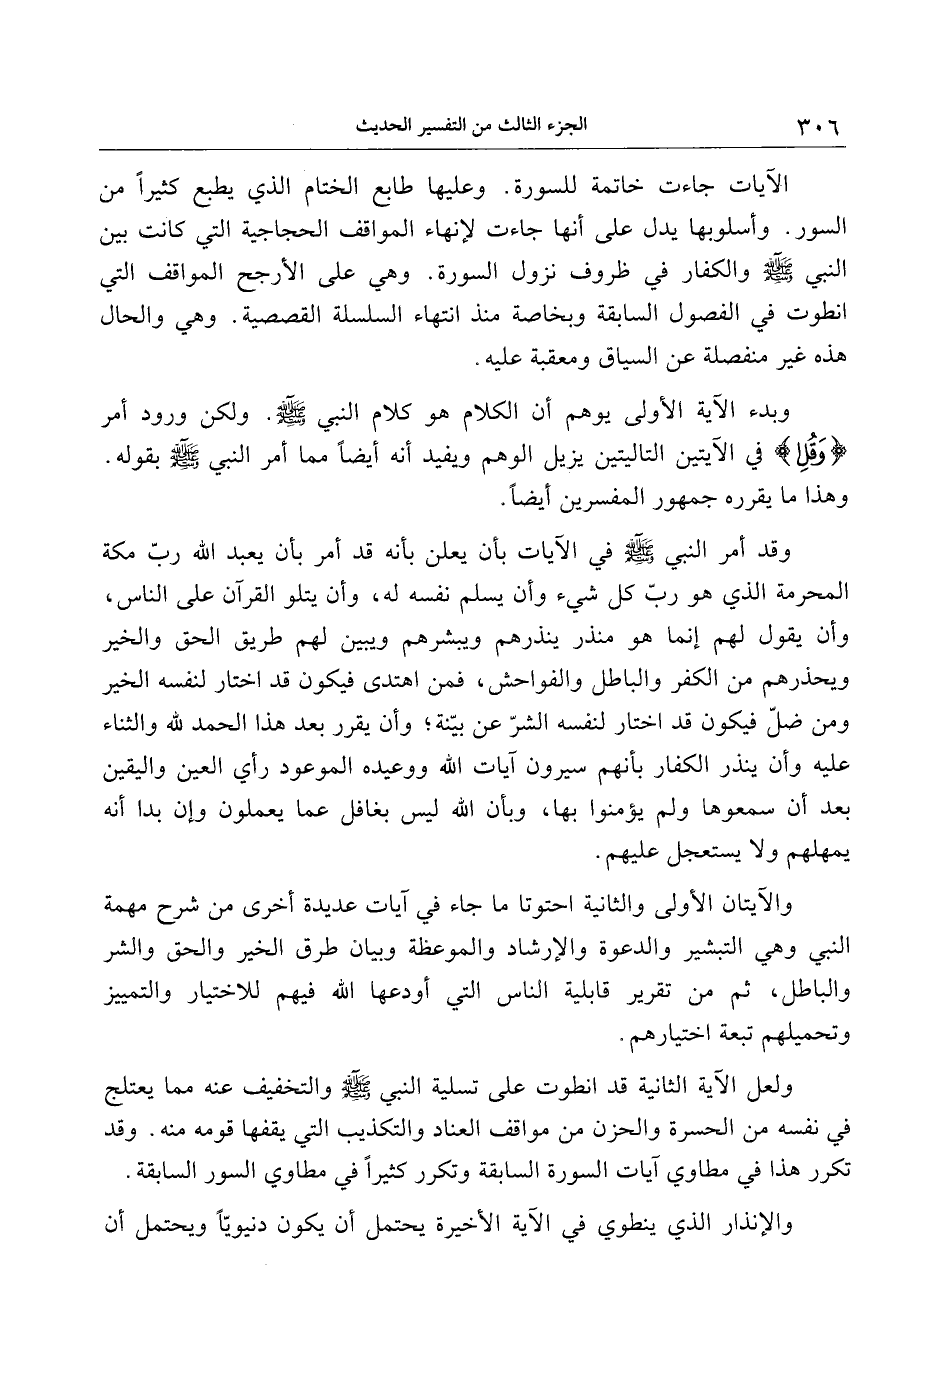 ٣٠٦ الجزء الثالث من التفسير الحديث
الآيات جاءت خاتمة للسورة. وعليها طابع الختام الذي يطبع كثيراً من
السور. وأسلوبها يدل على أنها جاءت لإنهاء المواقف الحجاجية التي كانت بين
النبي ﷺ والكفار في ظروف نزول السورة. وهي على الأرجح المواقف التي
انطوت في الفصول السابقة وبخاصة منذ انتهاء السلسلة القصصية. وهي والحال
هذه غير منفصلة عن السياق ومعقبة عليه.
وبدء الآية الأولى يوهم أن الكلام هو كلام النبي ﷺ. ولكن ورود أمر
﴿وَقُلِ﴾ في الآيتين التاليتين يزيل الوهم ويفيد أنه أيضاً مما أمر النبي ﷺ بقوله.
وهذا ما يقرره جمهور المفسرين أيضاً.
وقد أمر النبي ﷺ في الآيات بأن يعلن بأنه قد أمر بأن يعبد الله ربّ مكة
المحرمة الذي هو ربّ كل شيء وأن يسلم نفسه له، وأن يتلو القرآن على الناس،
وأن يقول لهم إنما هو منذر ينذرهم ويبشرهم ويبين لهم طريق الحق والخير
ويحذرهم من الكفر والباطل والفواحش، فمن اهتدى فيكون قد اختار لنفسه الخير
ومن ضلّ فيكون قد اختار لنفسه الشرّ عن بيّنة؛ وأن يقرر بعد هذا الحمد لله والثناء
عليه وأن ينذر الكفار بأنهم سيرون آيات الله ووعيده الموعود رأي العين واليقين
بعد أن سمعوها ولم يؤمنوا بها، وبأن الله ليس بغافل عما يعملون وإن بدا أنه
يمهلهم ولا يستعجل عليهم.
والآيتان الأولى والثانية احتوتا ما جاء في آيات عديدة أخرى من شرح مهمة
النبي وهي التبشير والدعوة والإرشاد والموعظة وبيان طرق الخير والحق والشر
والباطل، ثم من تقرير قابلية الناس التي أودعها الله فيهم للاختيار والتمييز
وتحميلهم تبعة اختيارهم.
ولعل الآية الثانية قد انطوت على تسلية النبي ﷺ والتخفيف عنه مما يعتلج
في نفسه من الحسرة والحزن من مواقف العناد والتكذيب التي يقفها قومه منه. وقد
تكرر هذا في مطاوي آيات السورة السابقة وتكرر كثيراً في مطاوي السور السابقة.
والإنذار الذي ينطوي في الآية الأخيرة يحتمل أن يكون دنيويّاً ويحتمل أن